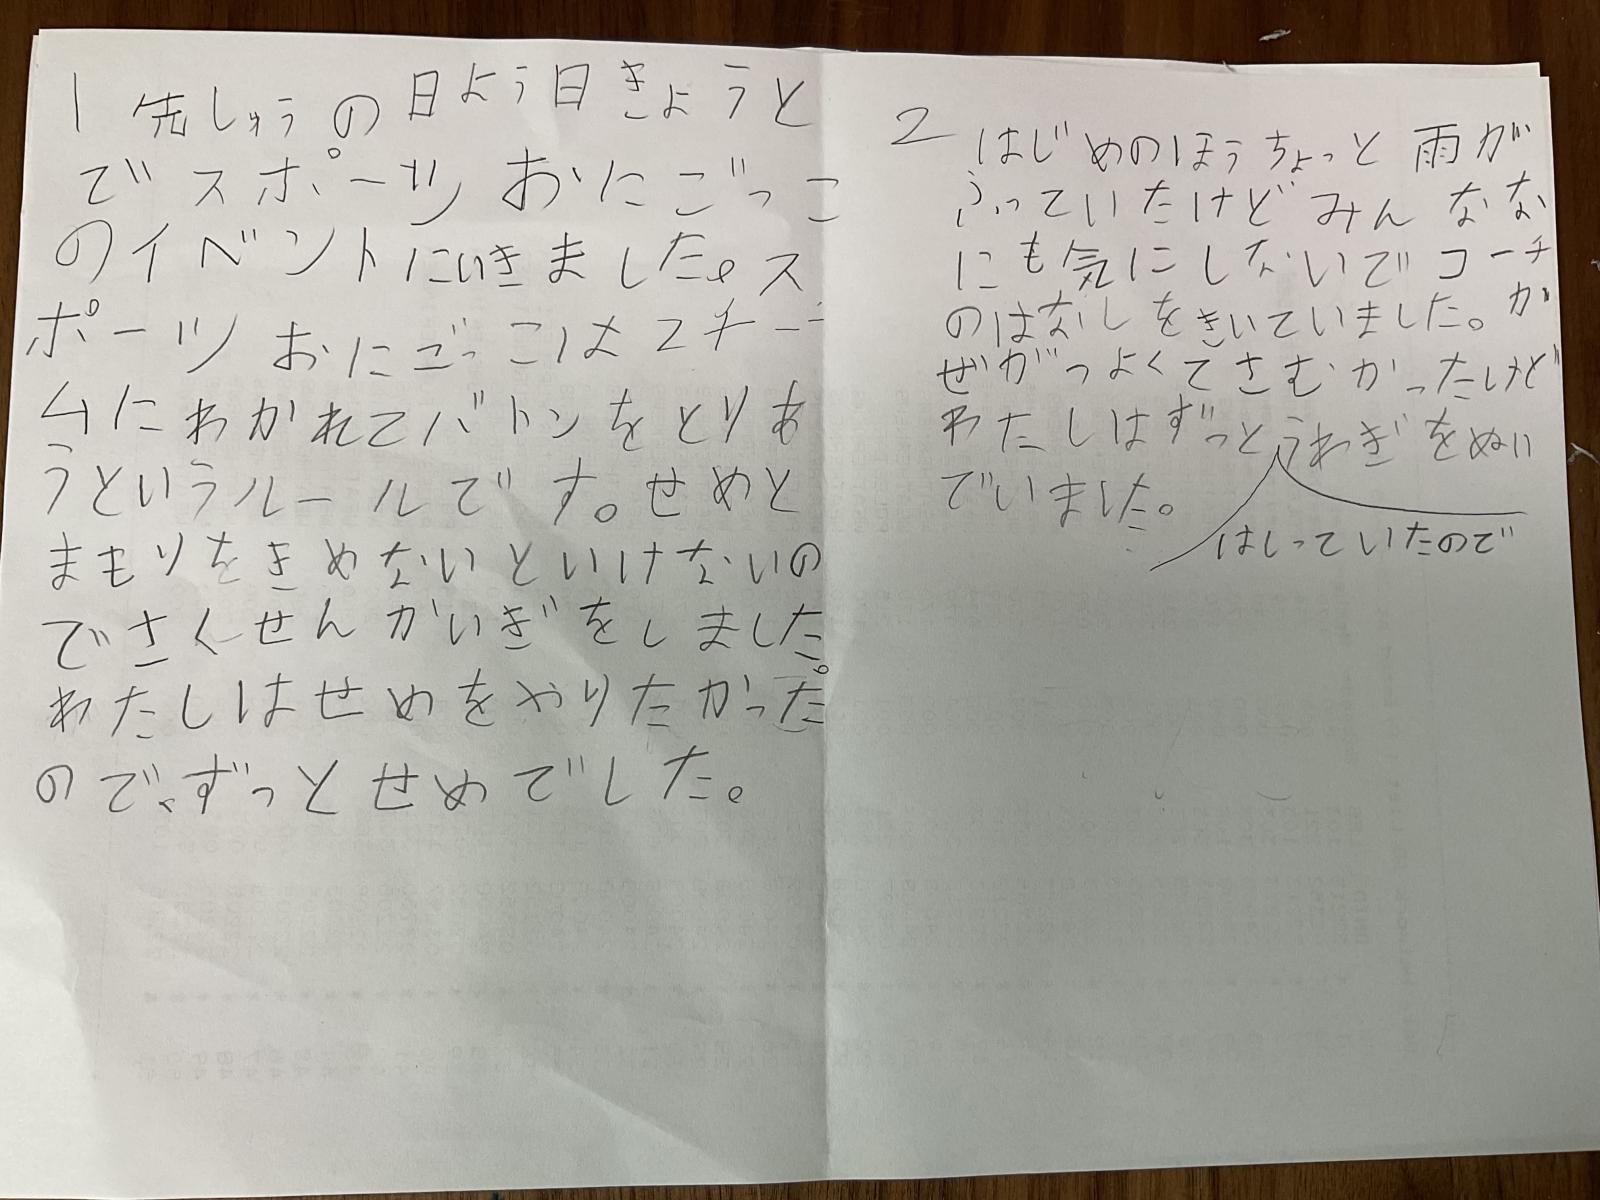 1 先しゅうの日よう日きょうと
でスポーツおにごっこ
のイベントにいきました。ス
ポーツおにごっこは2チー
ムにわかれてバトンをとりあ
うというルールです。せめと
まもりをきめないといけないの
でさくせんかいぎをしました。
わたしはせめをやりたかった
ので、ずっとせめでした。
2 はじめのほうちょっと雨が
ふっていたけどみんなな
にも気にしないでコーチ
のはなしをきいていました。か
ぜがつよくてさむかったけど
わたしはずっとうわぎをぬい
でいました。
はしっていたので